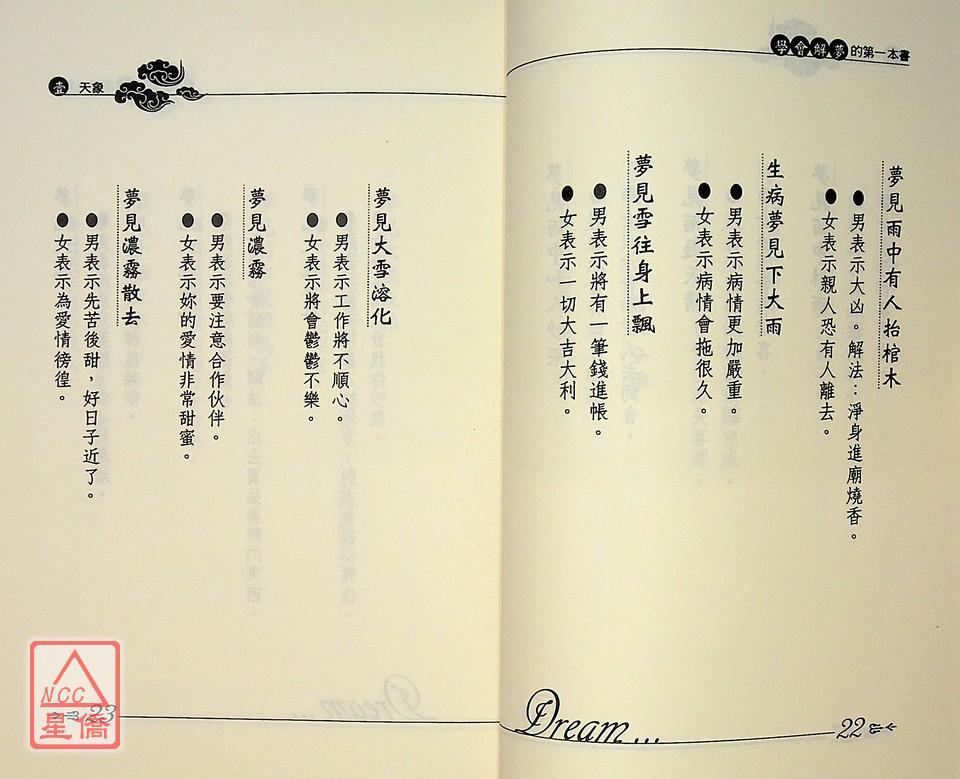 學會解夢的第一本書
夢見雨中有人抬棺木
●男表示大凶。解法：淨身進廟燒香。
●女表示親人恐有人離去。
生病夢見下大雨
●男表示病情更加嚴重。
●女表示病情會拖很久。
夢見雪往身上飄
●男表示將有一筆錢進帳。
●女表示一切大吉大利。
Dream...
22
壹 天象
夢見大雪溶化
●男表示工作將不順心。
●女表示將會鬱鬱不樂。
夢見濃霧
●男表示要注意合作伙伴。
●女表示妳的愛情非常甜蜜。
夢見濃霧散去
●男表示先苦後甜，好日子近了。
●女表示為愛情徬徨。
23
NCC
星僑